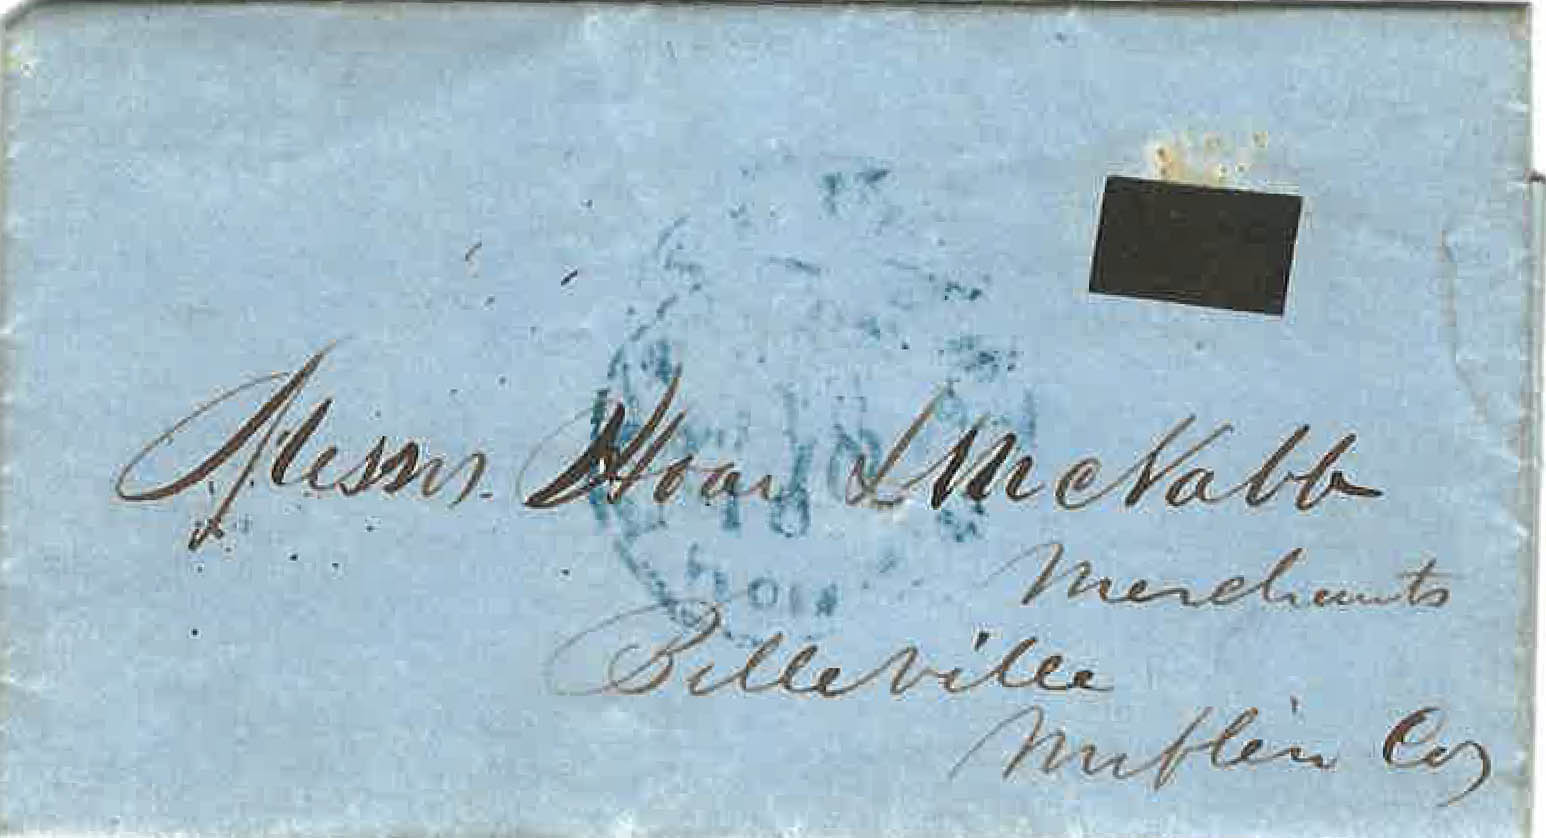 Messrs. Hoar & McNabb
Merchants
Belleville
Mifflin Co,